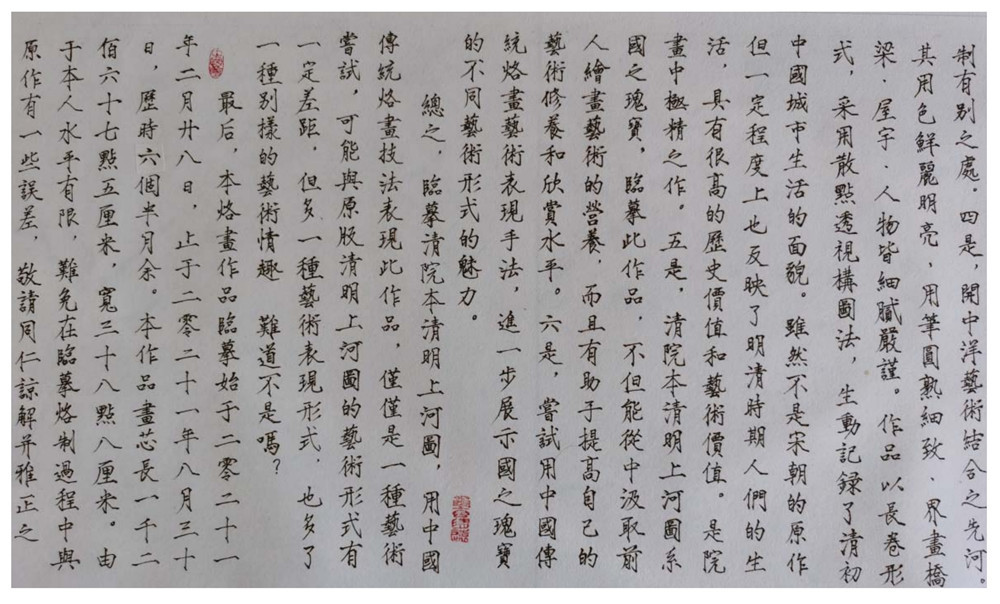 制有别之處。四是，開中洋藝術結合之先河。
其用色鮮麗明亮，用筆圓熟細致、界畫橋
梁、屋宇、人物皆細膩嚴謹。作品以長卷形
式，采用散點透視構圖法，生動記録了清初
中國城市生活的面貌。雖然不是宋朝的原作
但一定程度上也反映了明清時期人們的生
活，具有很高的歷史價值和藝術價值。是院
畫中極精之作。五是，清院本清明上河圖系
國之瑰寶，臨摹此作品，不但能從中汲取前
人繪畫藝術的營養，而且有助于提高自己的
藝術修養和欣賞水平。六是，嘗試用中國傳
統烙畫藝術表現手法，進一步展示國之瑰寶
的不同藝術形式的魅力。
總之，臨摹清院本清明上河圖，用中國
傳統烙畫技法表現此作品，僅僅是一種藝術
嘗試，可能與原版清明上河圖的藝術形式有
一定差距，但多一種藝術表現形式，也多了
一種别樣的藝術情趣 難道不是嗎？
最后，本烙畫作品臨摹始于二零二十一
年二月廿八日，止于二零二十一年八月三十
日，歷時六個半月余。本作品畫芯長一千二
佰六十七點五厘米，寬三十八點八厘米。由
于本人水平有限，難免在臨摹烙制過程中與
原作有一些誤差，敬請同仁諒解并雅正之